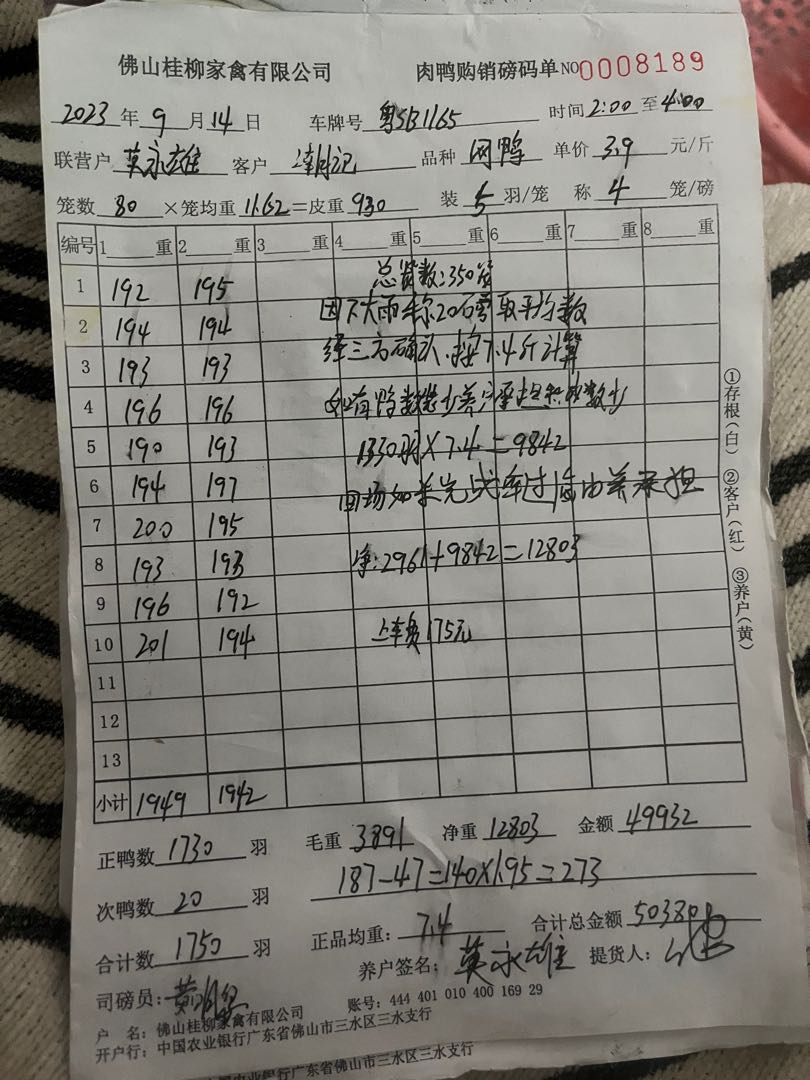 佛山桂柳家禽有限公司 肉鸭购销磅码单 NO 0008189
2023年9月14日 车牌号 粤SB1165 时间2:00至4:00
联营户 莫永雄 客户 潮记 品种 网鸭 单价 3.9 元/斤
笼数 80 ×笼均重 11.62 =皮重 930 装 5 羽/笼 称 4 笼/磅
编号 1 重 2 重 3 重 4 重 5 重 6 重 7 重 8 重
总货数:350
1 192 195
因下大雨称20磅需取平均数
2 194 194
经三方确认.按7.4斤计算
3 193 193
如有鸭数 少养户承担 数少
4 196 196
5 190 193 1330羽×7.4=9842
6 194 197 回场如未完 车过 由养承担
7 200 195
8 193 193 净:2961+9842=12803
9 196 192
10 201 194 上车费175元
11
12
13
小计 1949 1942
①存根(白) ②客户(红) ③养户(黄)
正鸭数 1730 羽 毛重 3891 净重 12803 金额 49932
次鸭数 20 羽 187-47=140×1.95=273
合计数 1750 羽 正品均重: 7.4 合计总金额 50380
司磅员: 养户签名: 莫永雄 提货人:
户 名: 佛山桂柳家禽有限公司 账号: 444 401 010 400 169 29
开户行: 中国农业银行广东省佛山市三水区三水支行
国农业银行广东省佛山市三水区三水支行